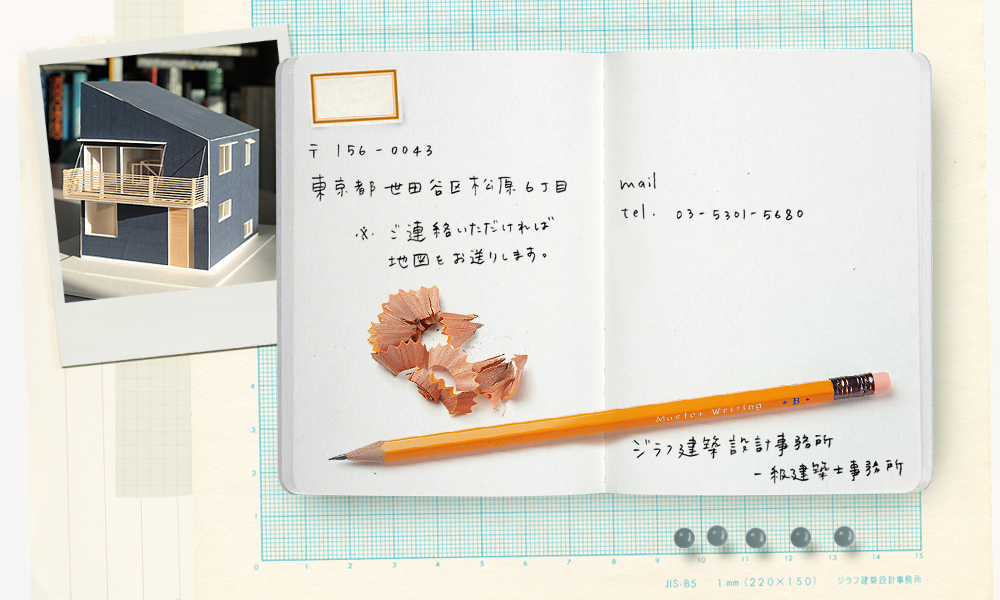 〒 156-0043
東京都世田谷区松原6丁目
※. ご連絡いただければ
地図をお送りします。
mail
tel. 03-5301-5680
Master Writing + B +
ジラフ建築設計事務所
一級建築士事務所
4
3
2
1
0 1 2 3 4 5 6 7 8 9 10 11 12 13 14 15
JIS-B5 1mm(220×150) ジラフ建築設計事務所